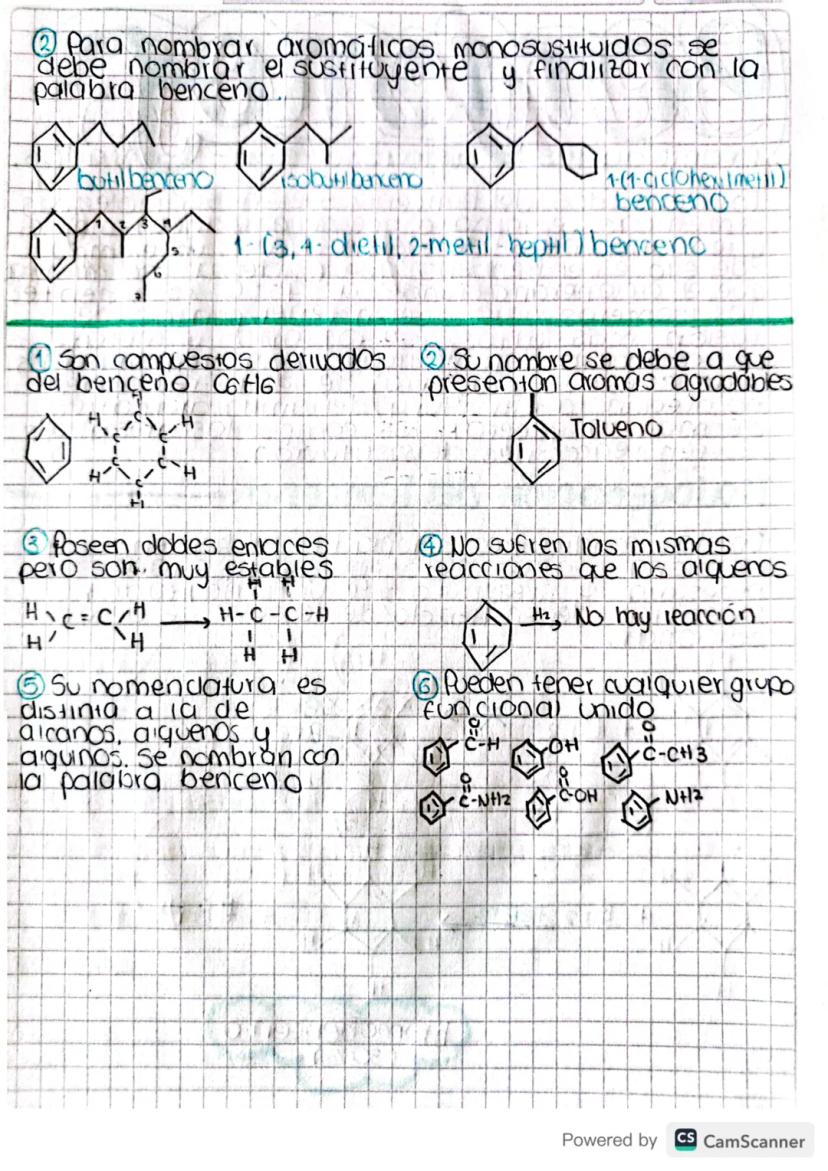 ② Para nombrar aromáticos monosustituidos se
debe nombrar el sustituyente y finalizar con la
palabra benceno.
butilbenceno
isobutilbenceno
1-(1-ciclohexilmetil)
benceno
1 2 3 4 5 6 7
1-(3,4-dietil, 2-metil-heptil) benceno
① Son compuestos derivados
del benceno C6H6
② Su nombre se debe a que
presentan aromas agradables
Tolueno
③ Poseen dobles enlaces
pero son muy estables
④ No sufren las mismas
reacciones que los alquenos
H C = C H
H H
H H
H-C-C-H
H H
H2 No hay reacción
⑤ Su nomenclatura es
distinta a la de
alcanos, alquenos y
alquinos. Se nombran con
la palabra benceno
⑥ Pueden tener cualquier grupo
funcional unido
O
C-H
OH
O
C-CH3
O
C-NH2
O
C-OH
NH2
Powered by CS CamScanner